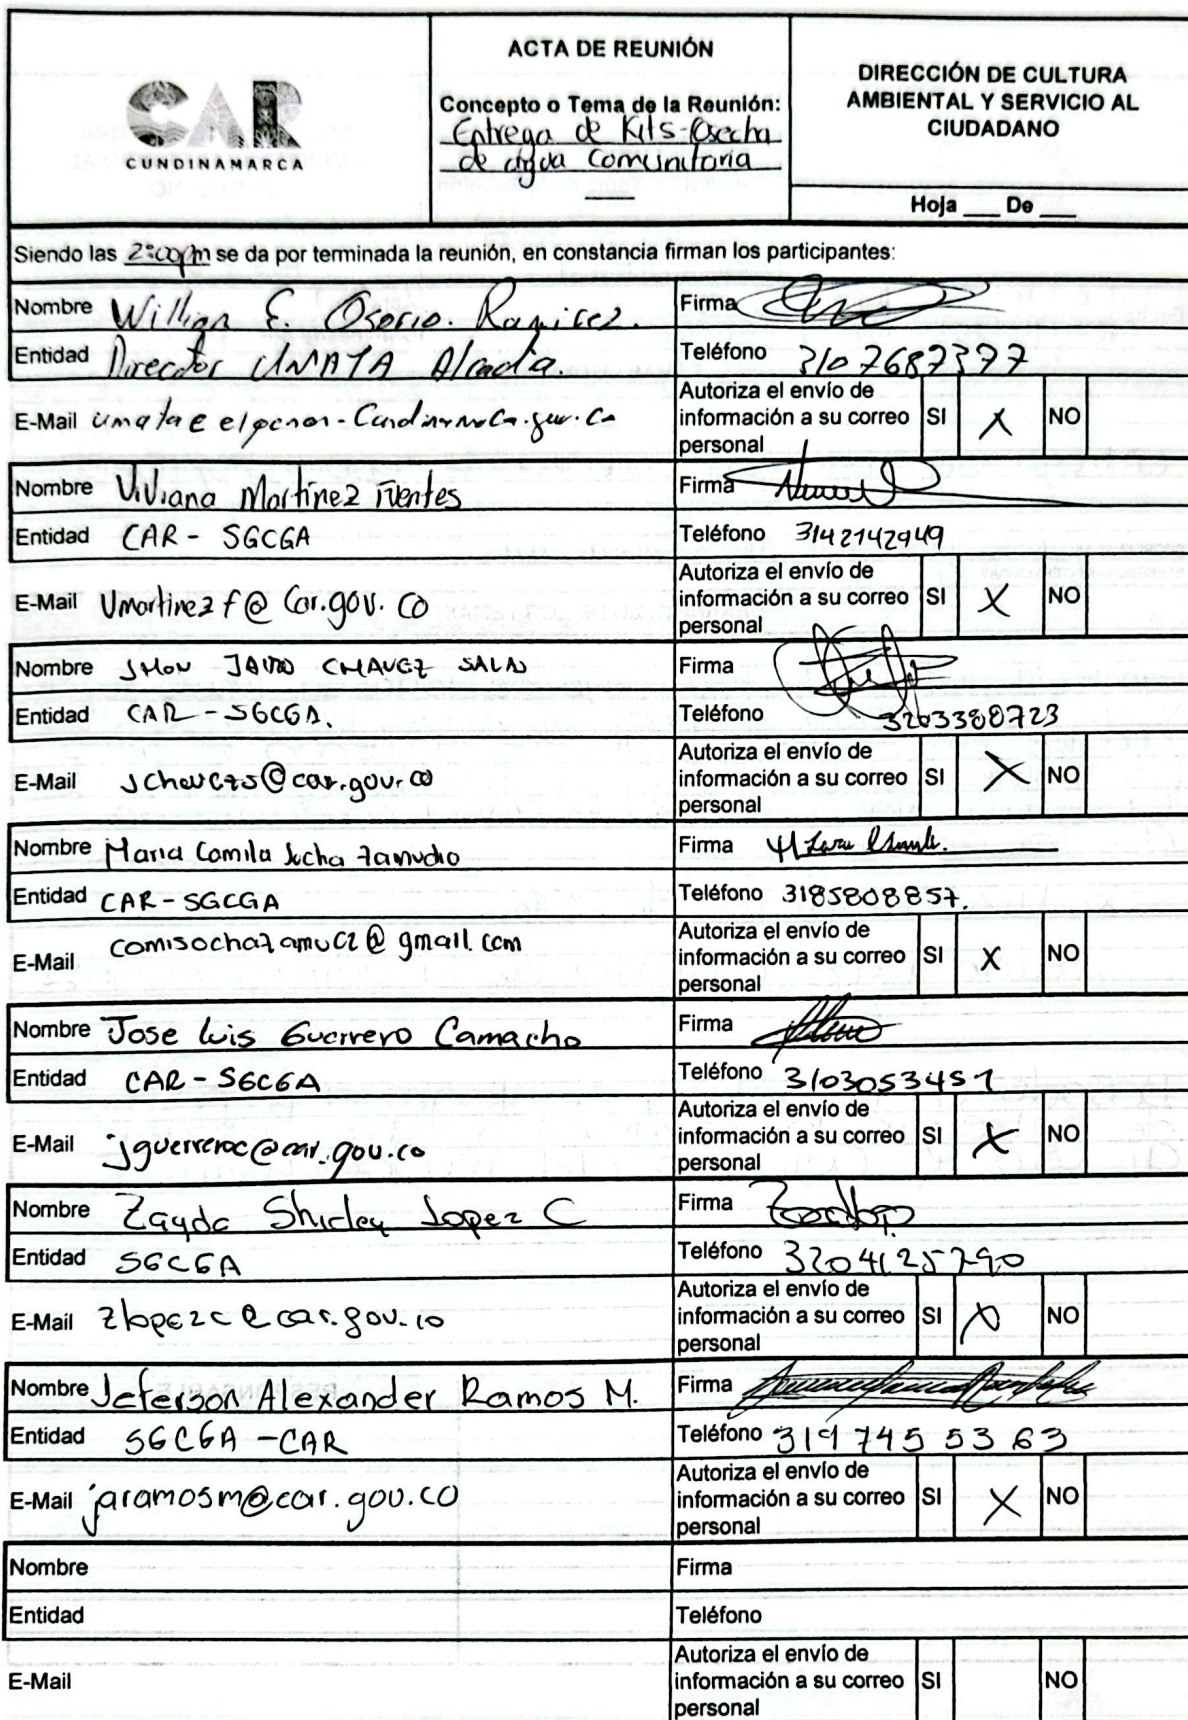 CAR
CUNDINAMARCA
ACTA DE REUNIÓN
Concepto o Tema de la Reunión:
Entrega de Kits-Osecha
de agua Comunitaria
DIRECCIÓN DE CULTURA
AMBIENTAL Y SERVICIO AL
CIUDADANO
Hoja ___ De ___
Siendo las 2:00pm se da por terminada la reunión, en constancia firman los participantes:
Nombre Willian E. Osorio. Ramirez.
Firma
Entidad Director UMATA Alcadia.
Teléfono 3107687377
E-Mail
Autoriza el envío de
información a su correo SI X NO
personal
Nombre Viviana Martinez Fuentes
Firma
Entidad CAR - SGCGA
Teléfono 3142142949
E-Mail Vmartinezf@car.gov.co
Autoriza el envío de
información a su correo SI X NO
personal
Nombre JHON JAIRO CHAVEZ SALAS
Firma
Entidad CAR - SGCGA.
Teléfono 3203380723
E-Mail jchavezs@car.gov.co
Autoriza el envío de
información a su correo SI X NO
personal
Nombre Maria Camila Socha Zamudio
Firma
Entidad CAR-SGCGA
Teléfono 3185808857.
E-Mail
Autoriza el envío de
información a su correo SI X NO
personal
Nombre Jose Luis Guerrero Camacho
Firma
Entidad CAR - SGCGA
Teléfono 3103053451
E-Mail jguerreroc@car.gov.co
Autoriza el envío de
información a su correo SI X NO
personal
Nombre Zayda Shirley Lopez C
Firma
Entidad SGCGA
Teléfono 3204125790
E-Mail zlopezc@car.gov.co
Autoriza el envío de
información a su correo SI X NO
personal
Nombre Jeferson Alexander Ramos M.
Firma
Entidad SGCGA - CAR
Teléfono 319 745 53 63
E-Mail jaramosm@car.gov.co
Autoriza el envío de
información a su correo SI X NO
personal
Nombre
Firma
Entidad
Teléfono
E-Mail
Autoriza el envío de
información a su correo SI NO
personal